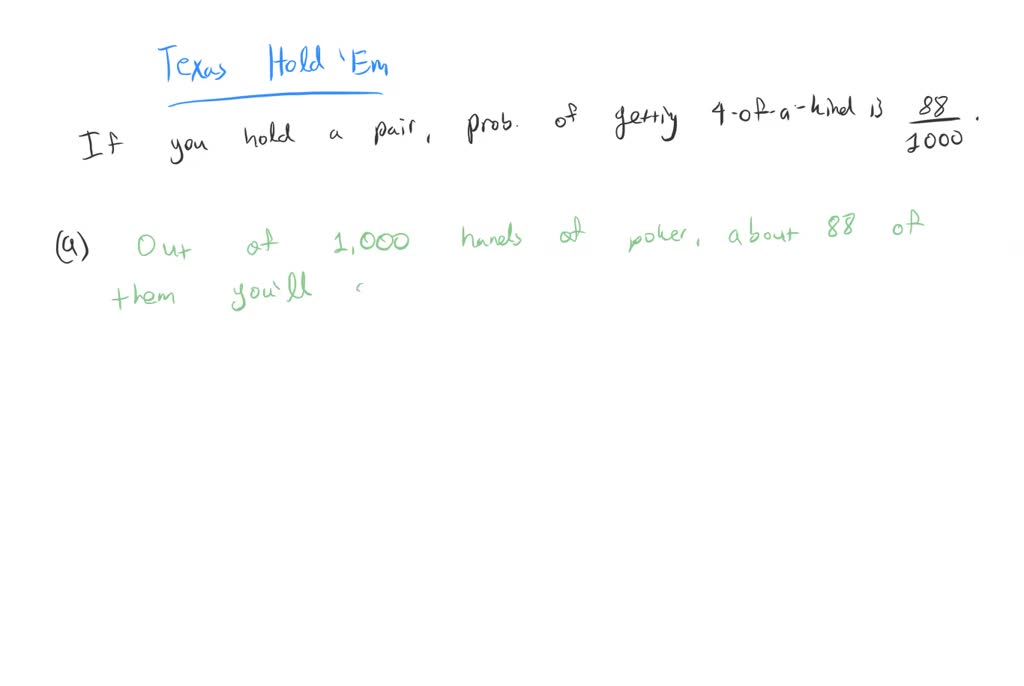 Texas Hold 'Em
If you hold a pair, prob. of getting 4-of-a-kind is 88/1000.
(a) Out of 1,000 hands of poker, about 88 of
them you'll